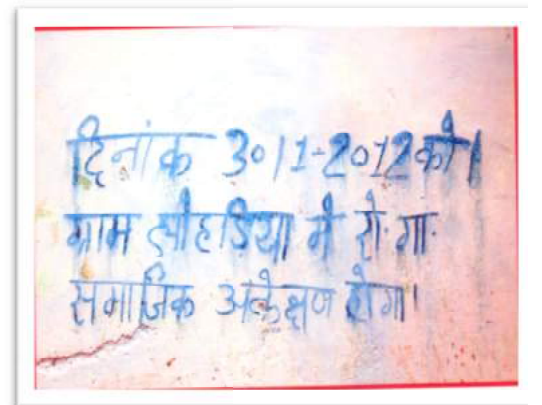 दिनांक 30/1-2012को।
ग्राम मे रो.गा.
समाजिक अकेक्षण होगा।